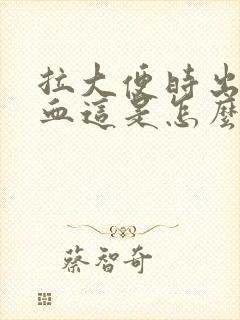 拉大便時出
血這是怎麼
蔡智奇